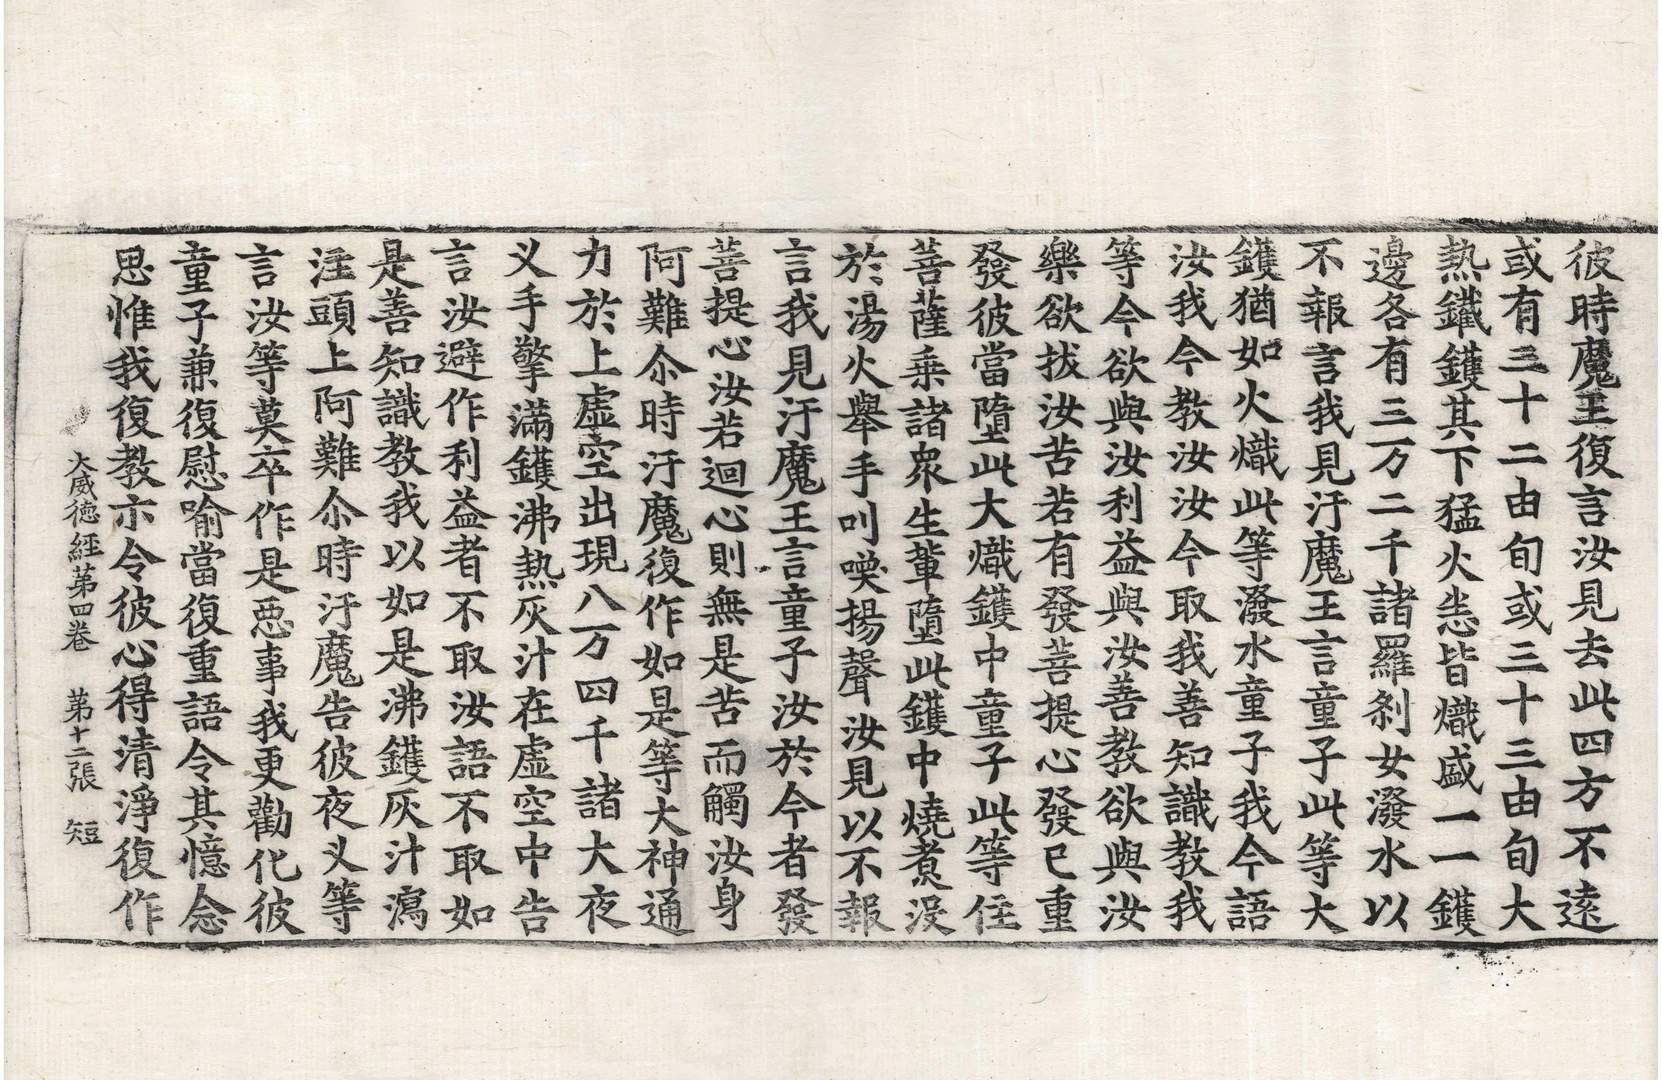 彼時魔王復言汝見去此四方不遠
或有三十二由旬或三十三由旬大
熱鐵鑊其下猛火悉皆熾盛一一鑊
邊各有三万二千諸羅剎女潑水以
不報言我見汙魔王言童子此等大
鑊猶如火熾此等潑水童子我今語
汝我今教汝汝今取我善知識教我
等今欲與汝利益與汝善教欲與汝
樂欲拔汝苦若有發菩提心發已重
發彼當墮此大熾鑊中童子此等住
菩薩乗諸衆生軰墮此鑊中燒煮沒
於湯火舉手叫喚揚聲汝見以不報
言我見汙魔王言童子汝於今者發
菩提心汝若迴心則無是苦而觸汝身
阿難尒時汙魔復作如是等大神通
力於上虛空出現八万四千諸大夜
义手擎滿鑊沸熱灰汁在虛空中告
言汝避作利益者不取汝語不取如
是善知識教我以如是沸鑊灰汁瀉
注頭上阿難尒時汙魔告彼夜义等
言汝等莫卒作是惡事我更勸化彼
童子兼復慰喻當復重語令其憶念
思惟我復教示令彼心得清淨復作
大威徳經第四卷 第十二張 短